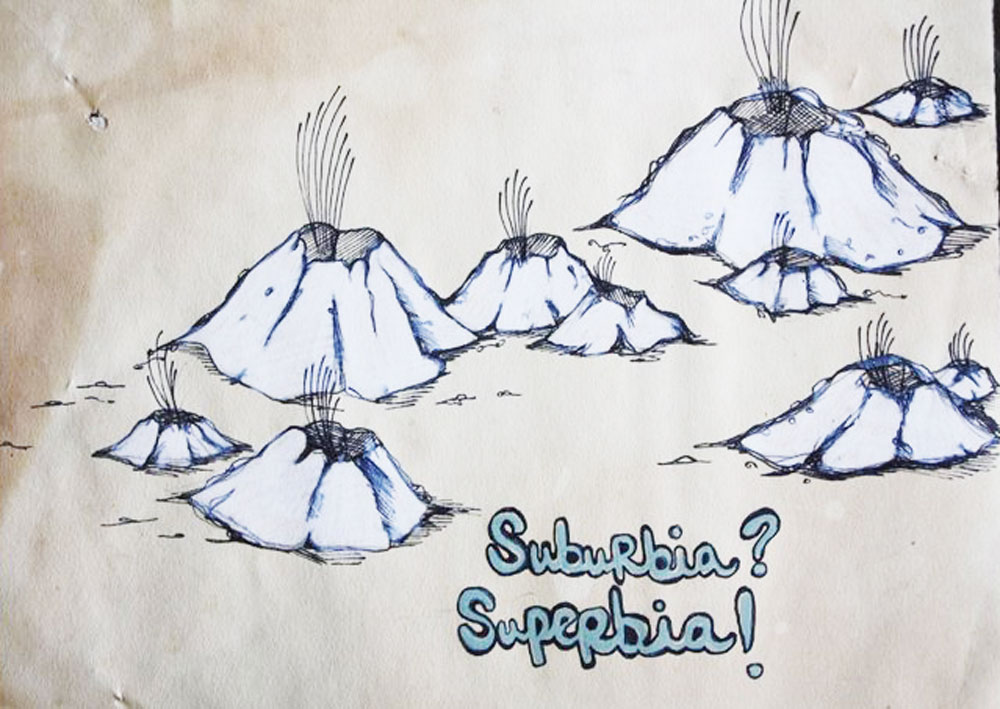 Suburbia?
Superbia!